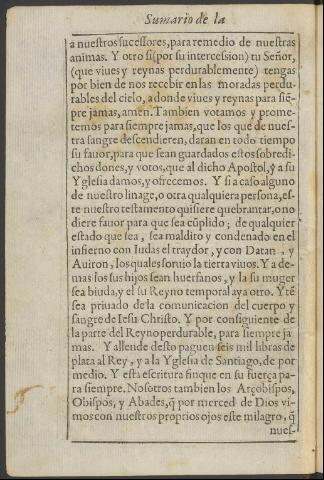 Sumario de la
a nuestros sucessores, para remedio de nuestras
animas. Y otro si (por su intercession) tu Señor,
(que viues y reynas perdurablemente) tengas
por bien de nos recebir en las moradas perdu-
rables del cielo, adonde viues y reynas para siẽ-
pre jamas, amen. Tambien votamos y prome-
temos para siempre jamas, que los que de nues-
tra sangre descendieren, daran en todo tiempo
su fauor, para que sean guardados estos sobredi-
chos dones, y votos, que al dicho Apostol, y a su
Yglesia damos, y ofrecemos. Y si a caso alguno
de nuestro linage, o otra qualquiera persona, es-
te nuestro testamento quisiere quebrantar, o no
diere fauor para que sea cũplido; de qualquier
estado que sea, sea maldito y condenado en el
infierno con Iudas el traydor, y con Datan, y
Auiron, los quales soruio la tierra viuos. Y a de-
mas los sus hijos sean huerfanos, y la su muger
sea biuda, y el su Reyno temporal aya otro. Y tẽ
sea priuado de la comunicacion del cuerpo y
sangre de Iesu Christo. Y por consiguiente de
la parte del Reyno perdurable, para siempre ja
mas. Y allende desto paguen seis mil libras de
plata al Rey, y a la Yglesia de Santiago, de por
medio. Y esta escritura finque en su fuerça pa-
ra siempre. Nosotros tambien los Arçobispos,
Obispos, y Abades, q̃ por merced de Dios vi-
mos con nuestros propios ojos este milagro, q̃
nues-